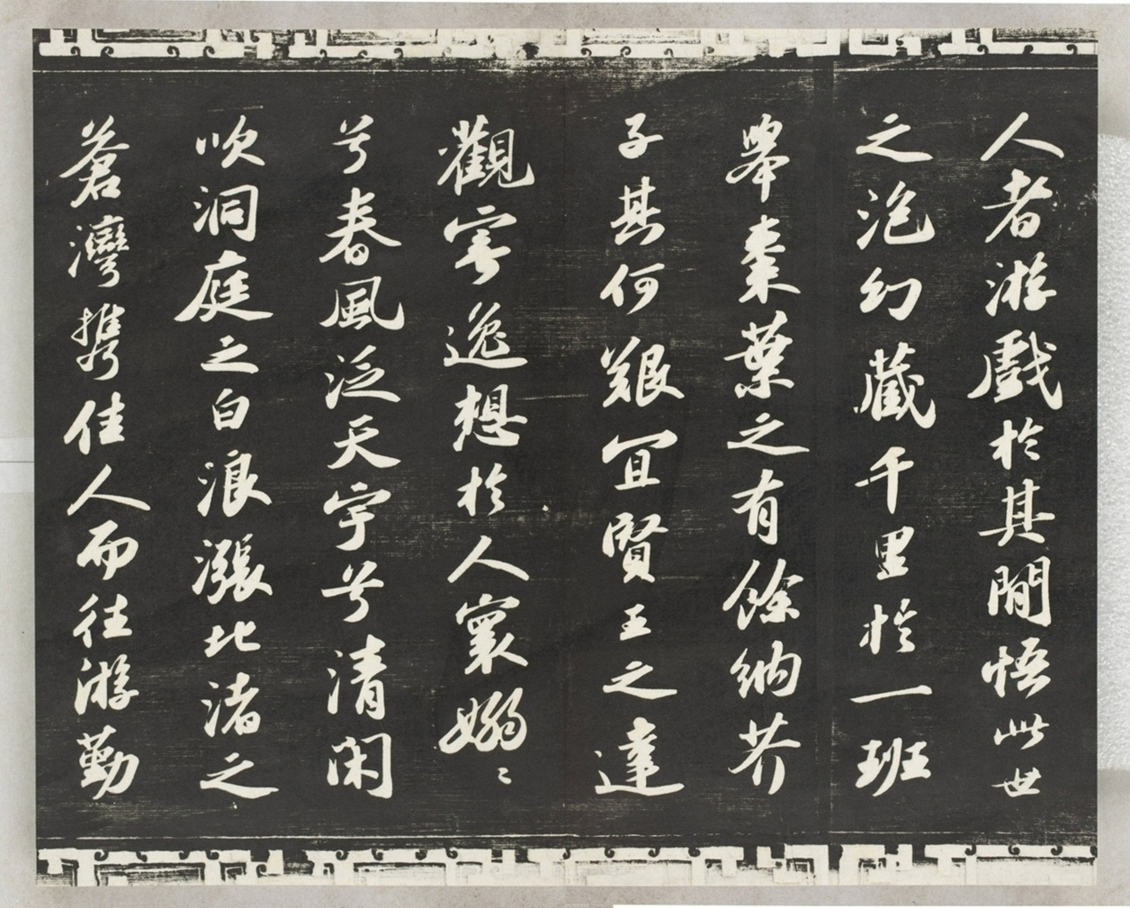 人者游戲於其間悟此世
之泡幻藏千里於一班
舉棗葉之有餘納芥
子其何艱宜賢王之達
觀寄逸想於人寰嫋〻
兮春風泛天宇兮清閑
吹洞庭之白浪漲北渚之
蒼灣攜佳人而往游勤